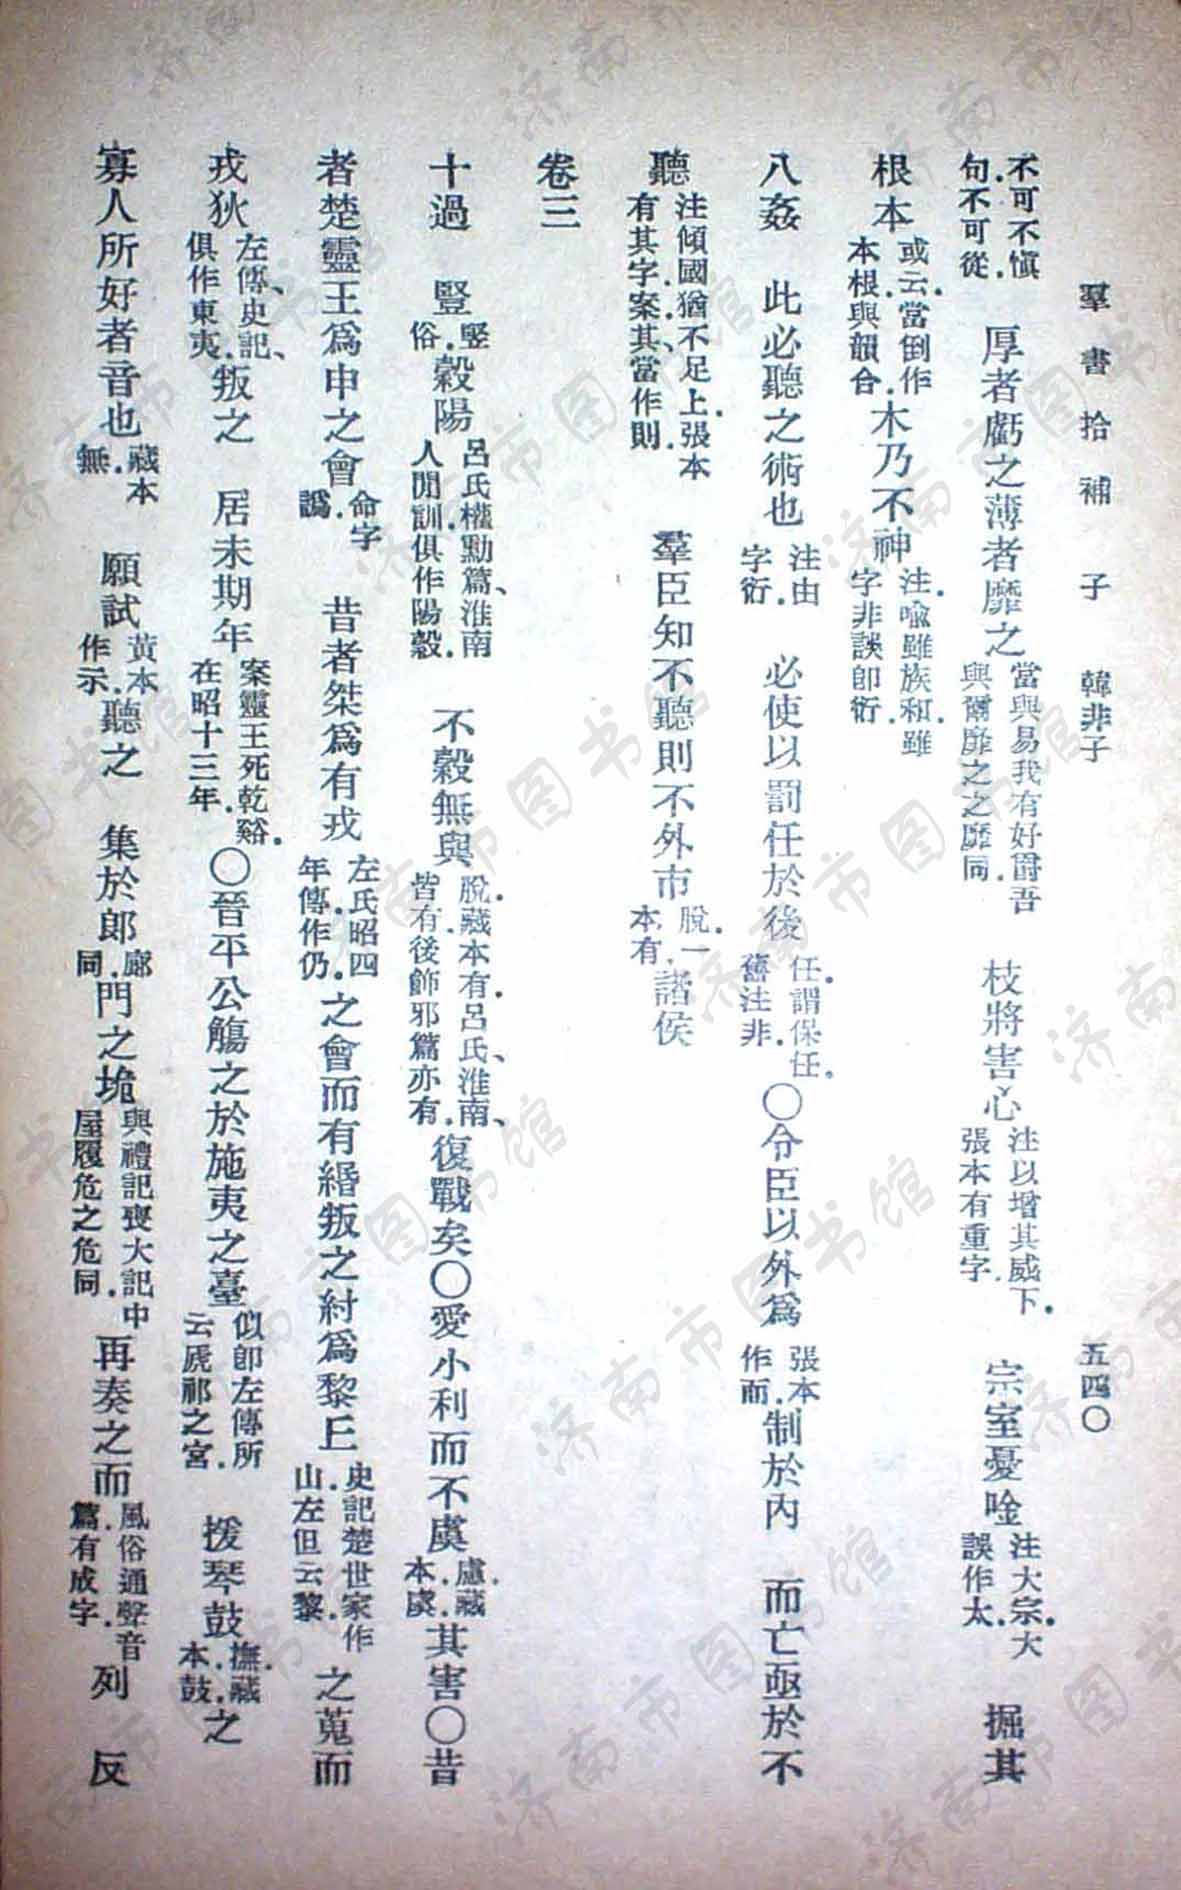 羣書拾補 子 韓非子 五四〇
不可不愼句.不可從. 厚者虧之薄者靡之當與易我有好爵吾與爾靡之之靡同. 枝將害心注以增其威下.張本有重字. 宗室憂唫注大宗.大誤作太. 掘其
根本或云.當倒作本根.與韻合. 木乃不神注.喩雖族和.雖字非誤卽衍.
八姦 此必聽之術也注由字衍. 必使以罰任於後任.謂保任.舊注非.〇令臣以外爲張本作而.制於內 而亡亟於不
聽注傾國猶不足上.張本有其字.案其、當作則. 羣臣知不聽則不外市脫.一本有.諸侯
卷三
十過 豎竪俗.穀陽呂氏權勳篇、淮南人閒訓.俱作陽穀. 不穀無與脫.藏本有.呂氏、淮南、皆有.後飾邪篇亦有.復戰矣〇愛小利而不虞慮.藏本.虞.其害〇昔
者楚靈王爲申之會命字譌. 昔者桀爲有戎左氏昭四年傳.作仍.之會而有緡叛之紂爲黎丘史記楚世家作山.左但云黎.之蒐而
戎狄左傳、史記、俱作東夷.叛之 居未期年案靈王死乾谿.在昭十三年.〇晉平公觴之於施夷之臺似卽左傳所云虒祁之宮. 援琴鼓撫.藏本.鼓.之
寡人所好者音也藏本無. 願試黃本作示.聽之 集於郎廊同.門之垝與禮記喪大記中屋履危之危同. 再奏之而風俗通聲音篇.有成字.列 反